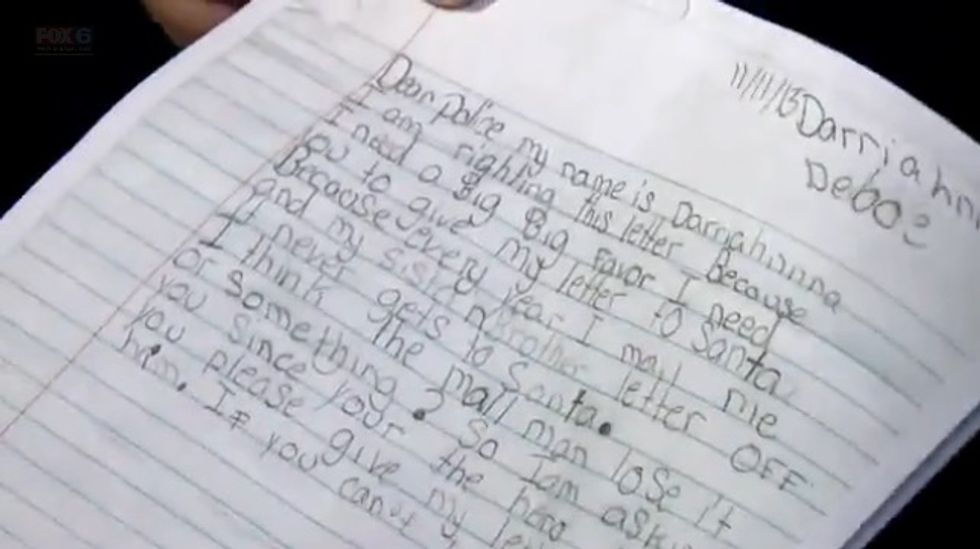 FOX 6
11/11/13 Darriahnn
Deboe
Dear police my name is Darriahnna
I am righting this letter Because
I need a Big Big Favor I need
ou to give my letter to Santa
Because every year I mail me
and my sistr n Brother letter OFF
It never gets to Santa.
I think the mail man lose it
or something. So Iam ask
you since your the hero
you please give my let
him. If you can't